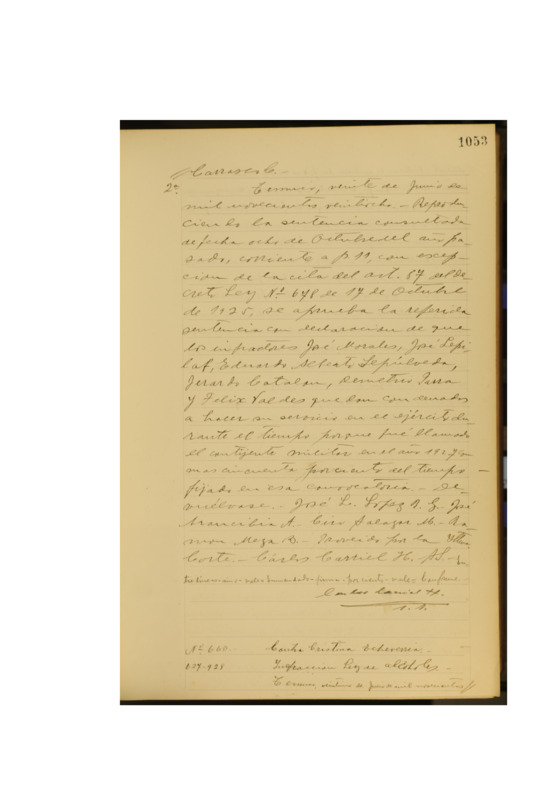 1053
Carrasco C.
2º Temuco, veinte de Junio de
mil novecientos veintiocho - Reprodu-
ciendo la sentencia consultada
de fecha ocho de Octubre del año pa-
sado, corriente a f. 11, con excep-
cion de la cita del art. 87 del de-
creto Ley Nº 678 de 17 de Octubre
de 1925, se aprueba la referida
sentencia con declaracion de que
los infractores José Morales, José
Eduardo Alberto Sepúlveda,
Jerardo Catalan, Demetrio Parra
y Felix Valdes quedan condenados
a hacer su servicio en el ejército du-
rante el tiempo porque fué llamado
el contijente militar en el año 1927
mas cincuenta por ciento del tiempo
fijado en esa convocatoria - De-
vuélvase. - José L. Lopez R. G. José
Arancibia A. Ciro Salazar M. - Ra-
mon Meza R. - Proveido por la Iltma
Corte. - Cárlos Carriel H. S.
por ciento - vale - Conforme -
Carlos Carriel H.
Nº 660. Cristina Echeverria.
Infraccion Ley de alcoholes -
Temuco, de Junio de mil novecientos